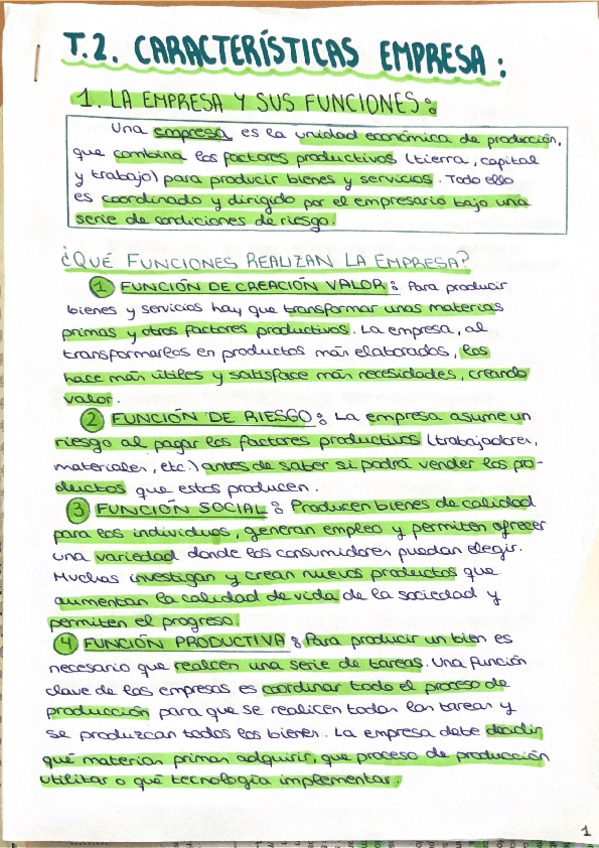 T.2. CARACTERÍSTICAS EMPRESA:
1. LA EMPRESA Y SUS FUNCIONES:
Una empresa es la unidad económica de producción,
que combina los factores productivos (tierra, capital
y trabajo) para producir bienes y servicios. Todo ello
es coordinado y dirigido por el empresario bajo una
serie de condiciones de riesgo.
¿QUÉ FUNCIONES REALIZAN LA EMPRESA?
1 FUNCIÓN DE CREACIÓN VALOR: Para producir
bienes y servicios hay que transformar unas materias
primas y otros factores productivos. La empresa, al
transformarlos en productos más elaborados, los
hace más útiles y satisface más necesidades, creando
valor.
2 FUNCIÓN DE RIESGO: La empresa asume un
riesgo al pagar los factores productivos (trabajadores,
materiales, etc.) antes de saber si podrá vender los pro-
ductos que estos producen.
3 FUNCIÓN SOCIAL: Producen bienes de calidad
para los individuos, generan empleo y permiten ofrecer
una variedad donde los consumidores puedan elegir.
Muchas investigan y crean nuevos productos que
aumentan la calidad de vida de la sociedad y
permiten el progreso.
4 FUNCIÓN PRODUCTIVA: Para producir un bien es
necesario que realicen una serie de tareas. Una función
clave de las empresas es coordinar todo el proceso de
producción para que se realicen todas las tareas y
se produzcan todos los bienes. La empresa debe decidir
qué materias primas adquirir, que proceso de producción
utilizar o qué tecnología implementar.
1